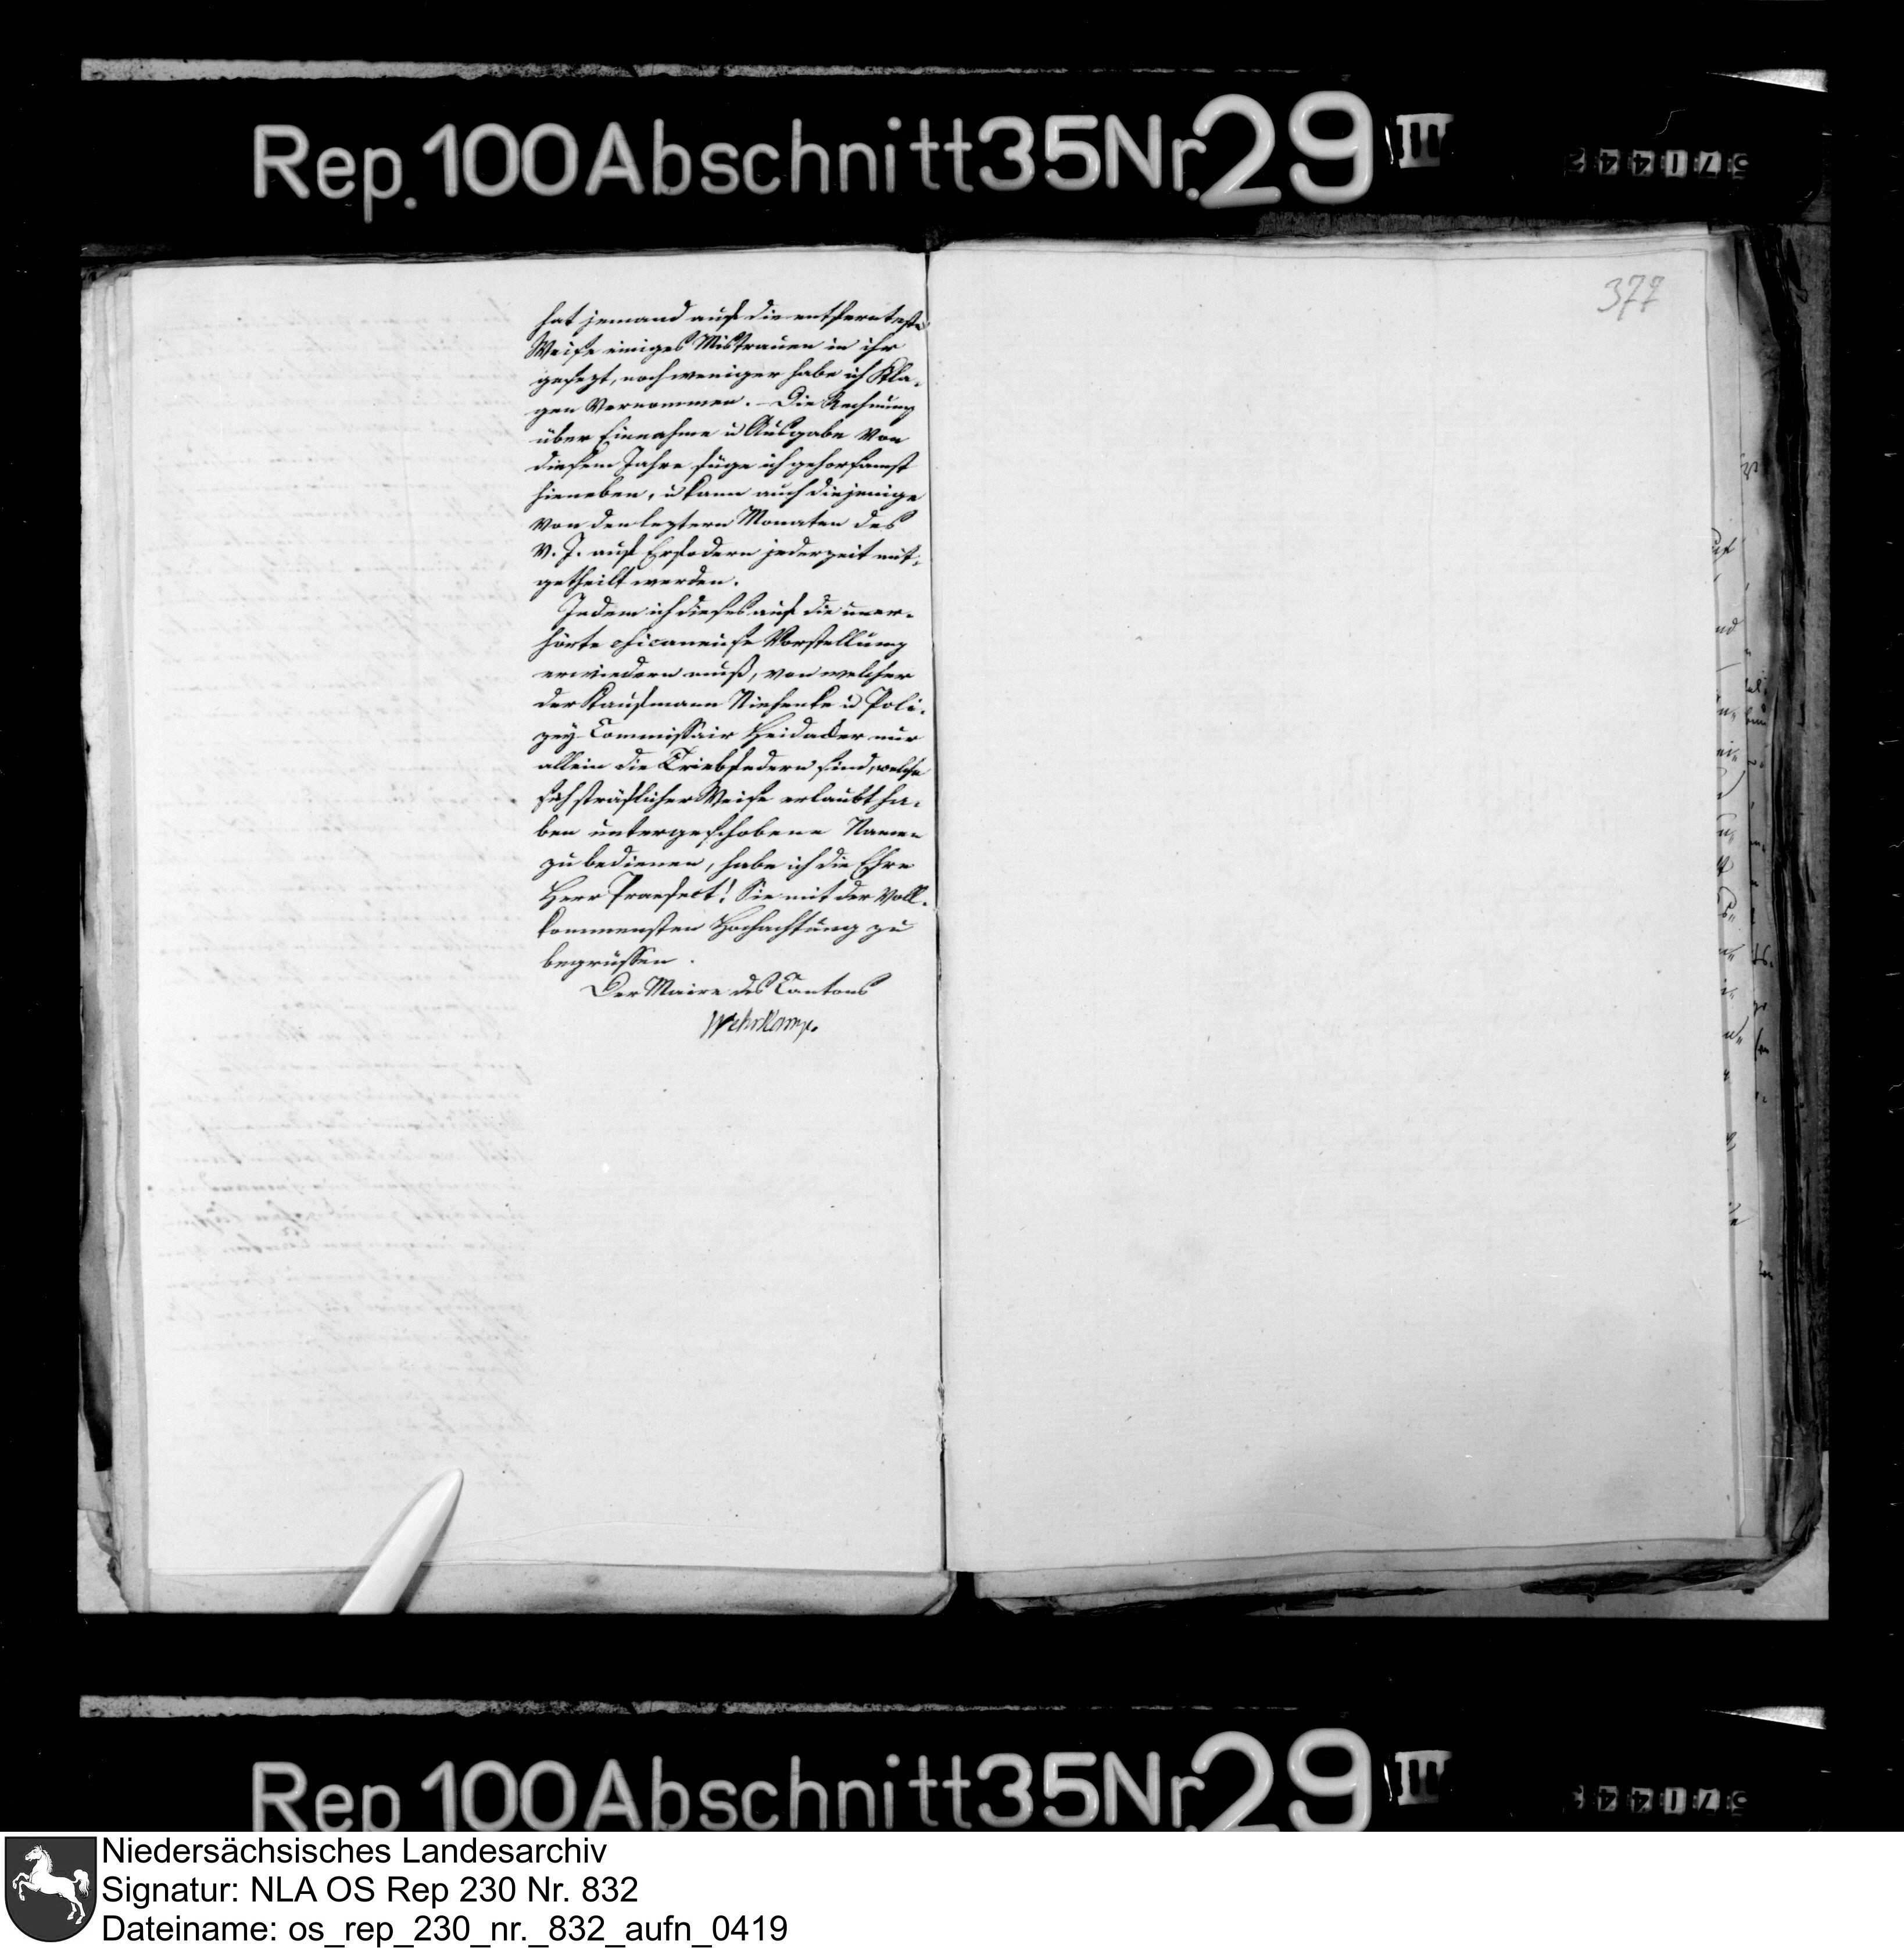 Rep. 100 Abschnitt 35 Nr. 29 III
377
hat jemand auf die entfernteste
Weise einiges Mistrauen in ihr
gesezt, noch weniger habe ich Kla-
gen vernommen. - Die Rechnung
über Einnahme u Ausgabe von
diesem Jahre füge ich gehorsamst
hieneben, u kann auch diejenige
von den leztern Monaten des
v. J. auf Erfodern jederzeit mit-
getheilt werden.
Indem ich dieses auf die uner-
hörte chicaneuse Vorstellung
erwiedern muß, von welcher
der Kaufmann Niehenke u Poli-
zey-Commissair Heidacker nur
allein die Triebfedern sind, welche
sich sträflicher Weise erlaubt ha-
ben untergeschobene Namen
zu bedienen, habe ich die Ehre
Herr Praefect! Sie mit der voll-
kommensten Hochachtung zu
begrüssen.
Der Maire des Cantons
Wehrkamp.
Rep 100 Abschnitt 35 Nr. 29 III
Niedersächsisches Landesarchiv
Signatur: NLA OS Rep 230 Nr. 832
Dateiname: os_rep_230_nr._832_aufn_0419